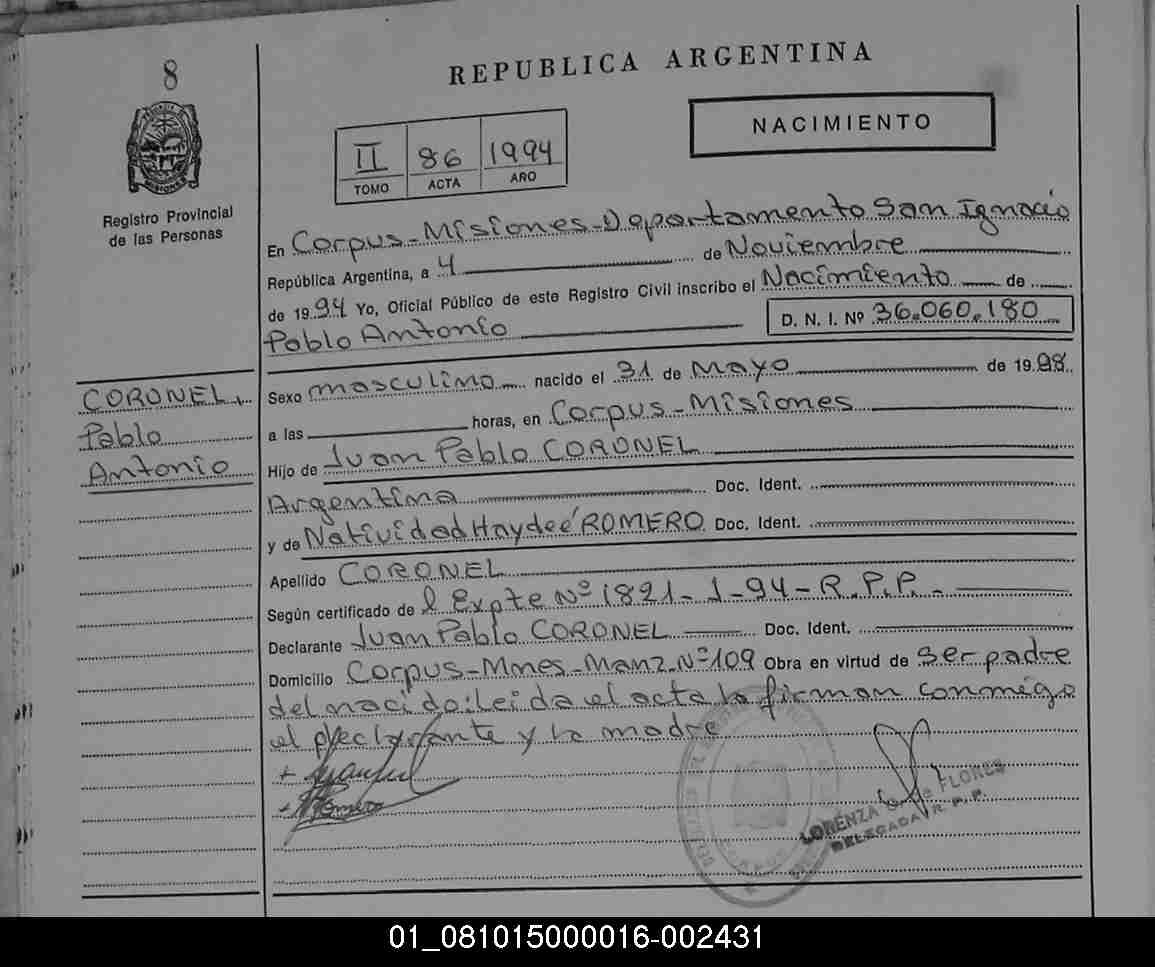 8
REPUBLICA ARGENTINA
NACIMIENTO
II 86 1994
TOMO ACTA AÑO
Registro Provincial
de las Personas
En Corpus-Misiones-Departamento San Ignacio
República Argentina, a 4 de Noviembre
de 1994 Yo, Oficial Público de este Registro Civil inscribo el Nacimiento de
Pablo Antonio D. N. I. Nº 36.060.180
CORONEL,
Pablo
Antonio
Sexo masculino nacido el 31 de Mayo de 1988
a las horas, en Corpus-Misiones
Hijo de Juan Pablo CORONEL
Argentina Doc. Ident.
y de Natividad Haydeé ROMERO Doc. Ident.
Apellido CORONEL
Según certificado de l Expte Nº 1821-1-94-R.P.P.-
Declarante Juan Pablo CORONEL Doc. Ident.
Domicilio Corpus-Mnes-Manz.Nº109 Obra en virtud de ser padre
del nacido: Leida el acta la firman conmigo
el declarante y la madre
Romero
LORENZA G. de FLORES
DELEGADA R. P. P.
01_081015000016-002431